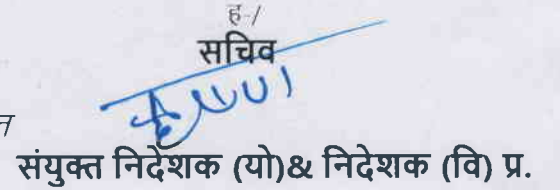 ह-/
सचिव
त
संयुक्त निदेशक (यो)& निदेशक (वि) प्र.